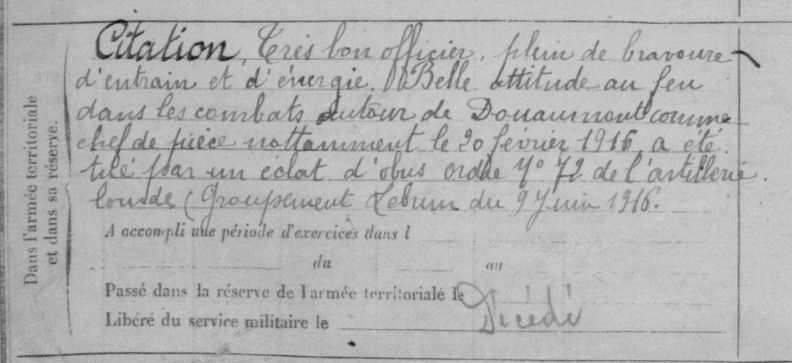 Citation, Très bon officier, plein de bravoure
d'entrain et d'énergie. Belle attitude au feu
dans les combats autour de Douaumont comme
chef de pièce nottamment le 20 février 1916, a été
tué par un éclat d'obus ordre N° 72 de l'artillerie
lourde (Groupement Lebrun du 9 Juin 1916.
Dans l'armée territoriale
et dans sa réserve.
A accompli une période d'exercices dans l
du au
Passé dans la réserve de l'armée territoriale le
Décédé
Libéré du service militaire le